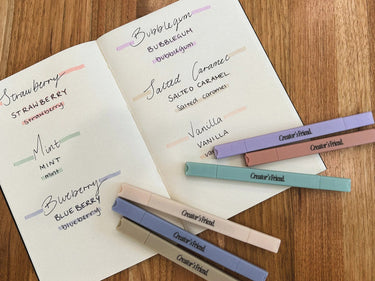 Strawberry
STRAWBERRY
strawberry
Mint
MINT
mint
Blueberry
BLUEBERRY
blueberry
Bubblegum
BUBBLEGUM
bubblegum
Salted Caramel
SALTED CARAMEL
salted caramel
Vanilla
VANILLA
Creator's Friend.
Creator's Friend.
Creator's Friend.
Creator's Friend.
Creator's Friend.
Creator's Friend.